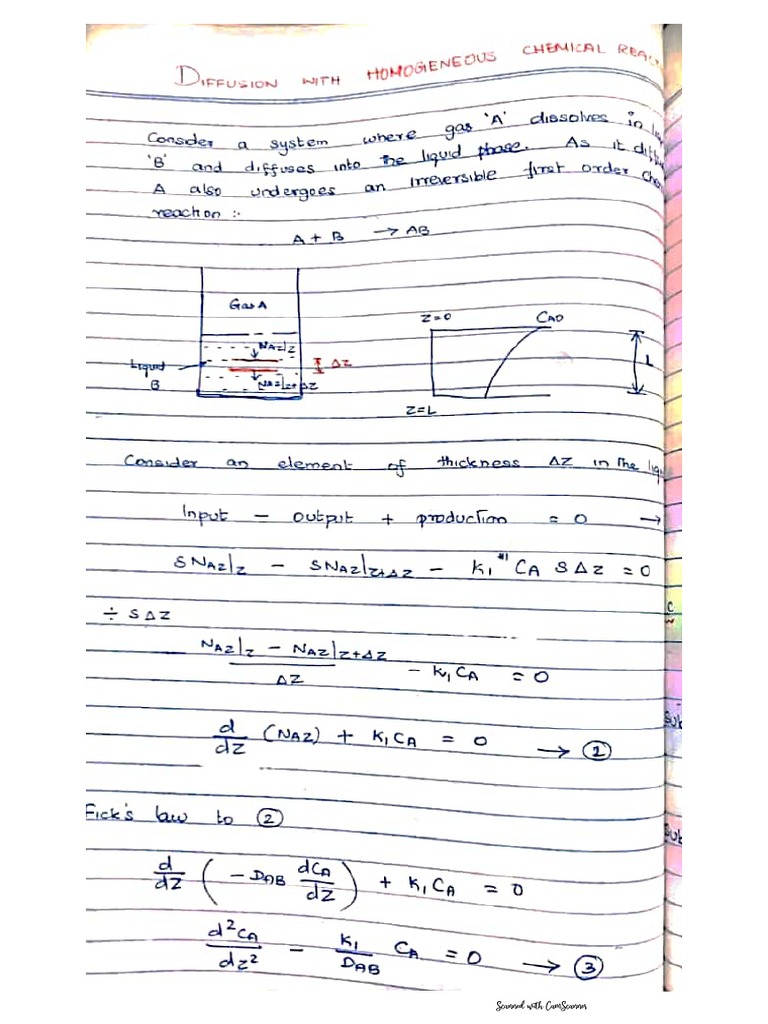 DIFFUSION WITH HOMOGIENEOUS CHEMICAL REAC
Consider a system where gas 'A' dissolves in
'B' and diffuses into the liquid phase. As it diff
A also undergoes an irreversible first order chem
reaction :-
A + B → AB
Gas A
NAz|z
Liquid
B
ΔZ
NAz|z+ΔZ
Z=0
CAO
L
Z=L
Consider an element of thickness ΔZ in the liqu
Input - output + production = 0 →
S NAZ|z - SNAZ|z+ΔZ - K1''' CA SΔZ = 0
÷ SΔZ
NAZ|z - NAZ|z+ΔZ / ΔZ - K1CA = 0
d/dz (NAZ) + K1CA = 0 → ②
Fick's law to ②
d/dz ( - DAB dCA/dz ) + K1CA = 0
d²CA/dz² - K1/DAB CA = 0 → ③
C
Sub
Sub
Scanned with CamScanner